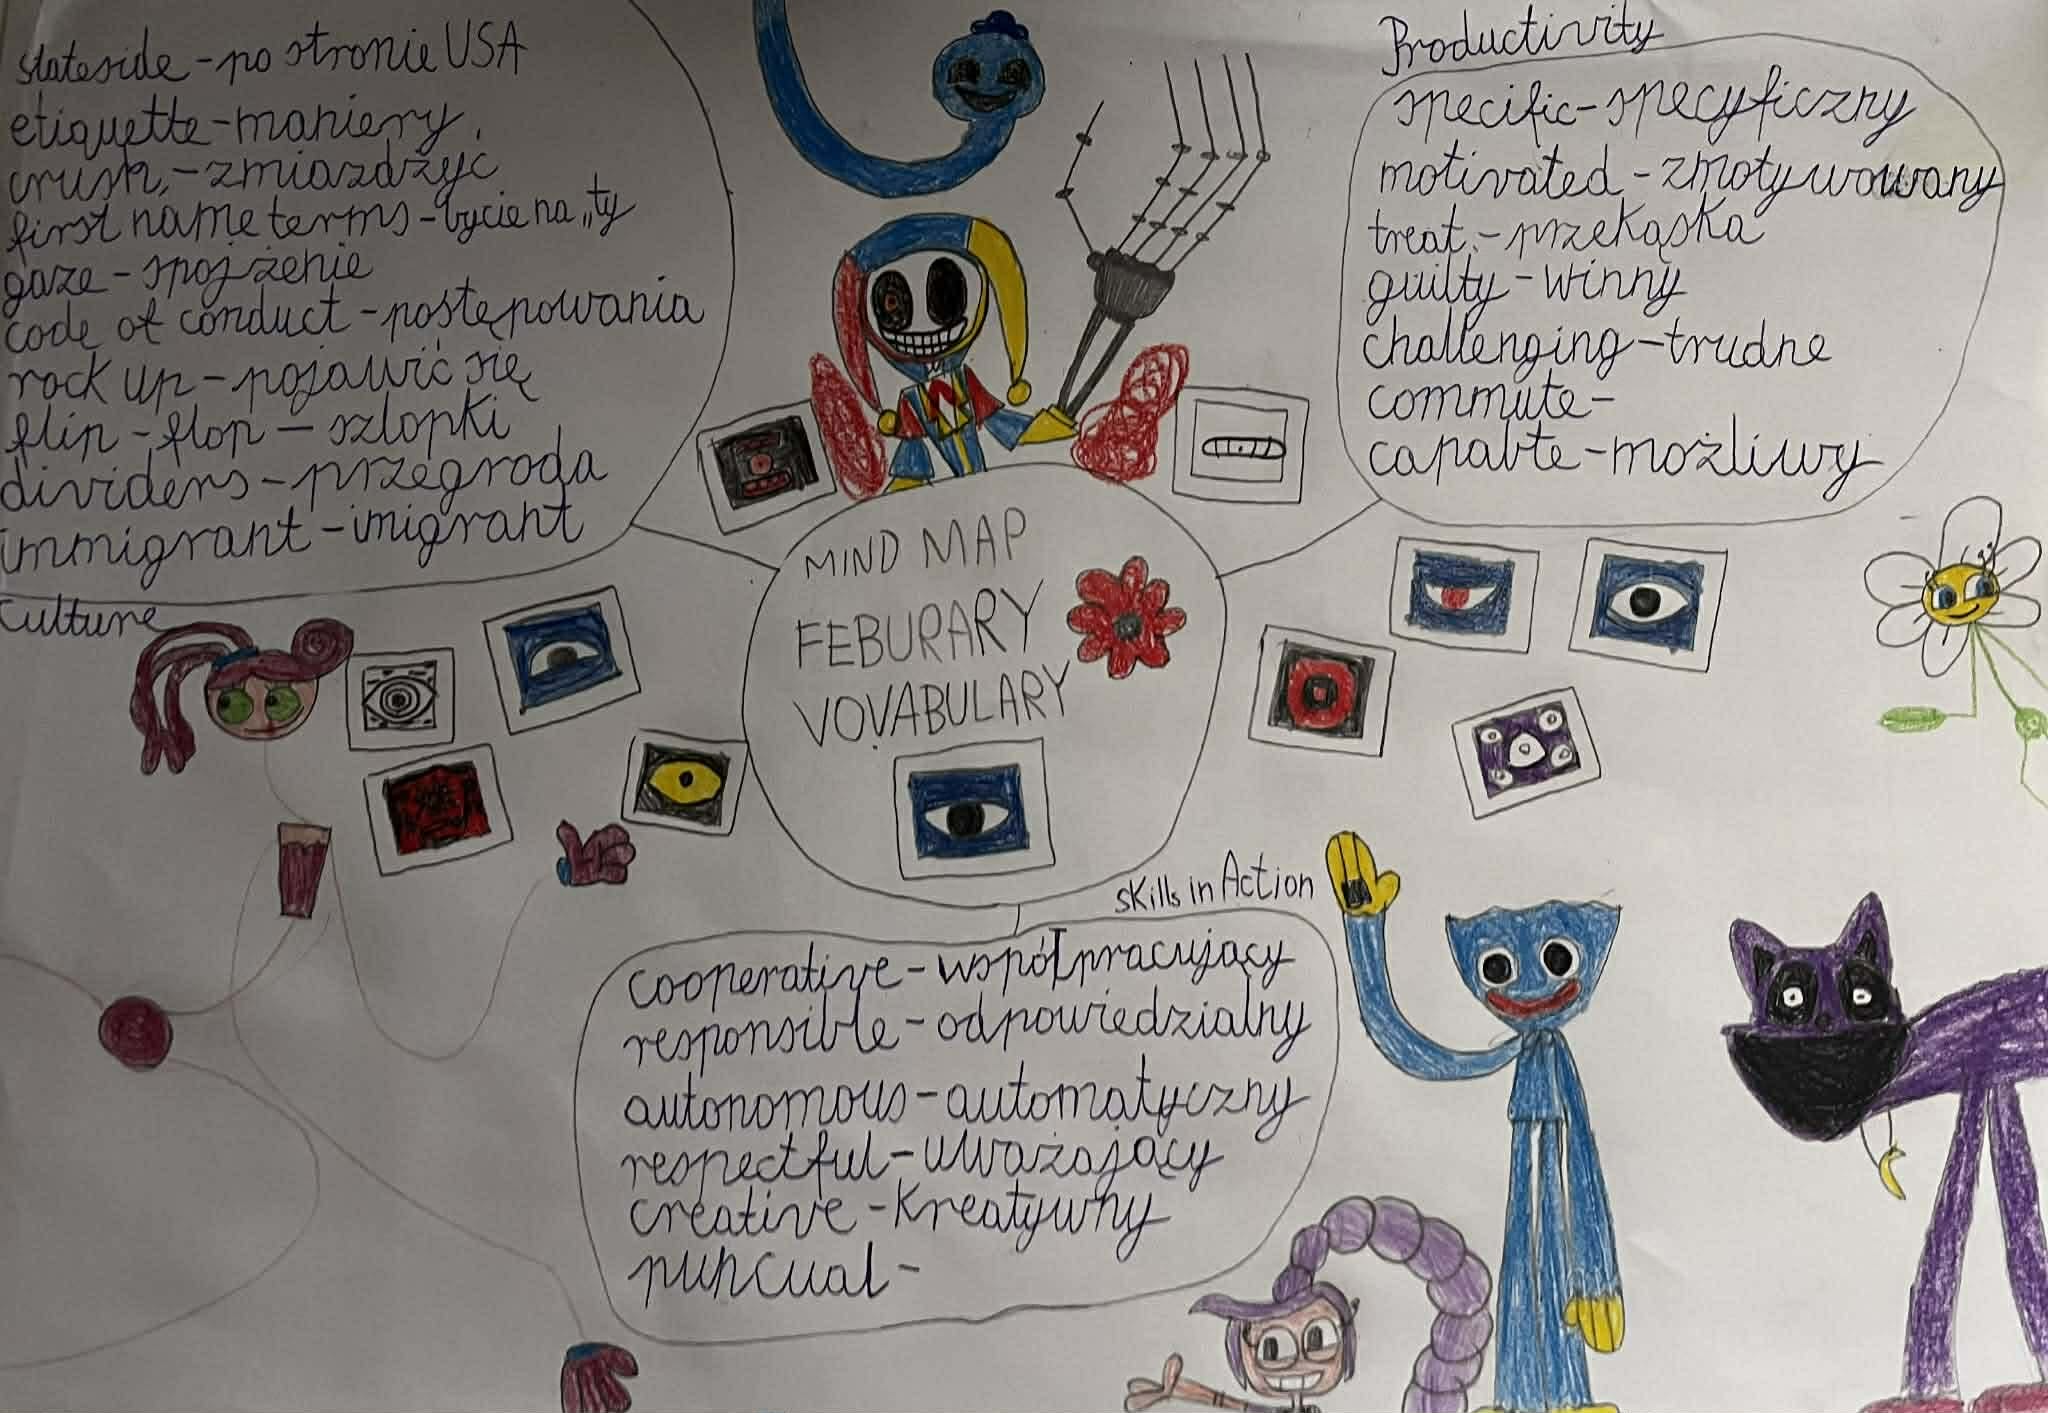 stateside - po stronie USA
etiquette - maniery.
crush, - zmiażdżyć
first name terms - bycie na „ty
gaze - spojżenie
code of conduct - postępowania
rock up - pojawić się
flip - flop - szlopki
dividers - przegroda
immigrant - imigrant
Culture
Productivity
specific - specyficzny
motivated - zmotywowany
treat. - przekąska
guilty - winny
challenging - trudne
commute -
capable - możliwy
MIND MAP
FEBURARY
VOVABULARY
skills in Action
cooperative - współpracujący
responsible - odpowiedzialny
autonomous - automatyczny
respectful - uważający
creative - kreatywny
puncual -